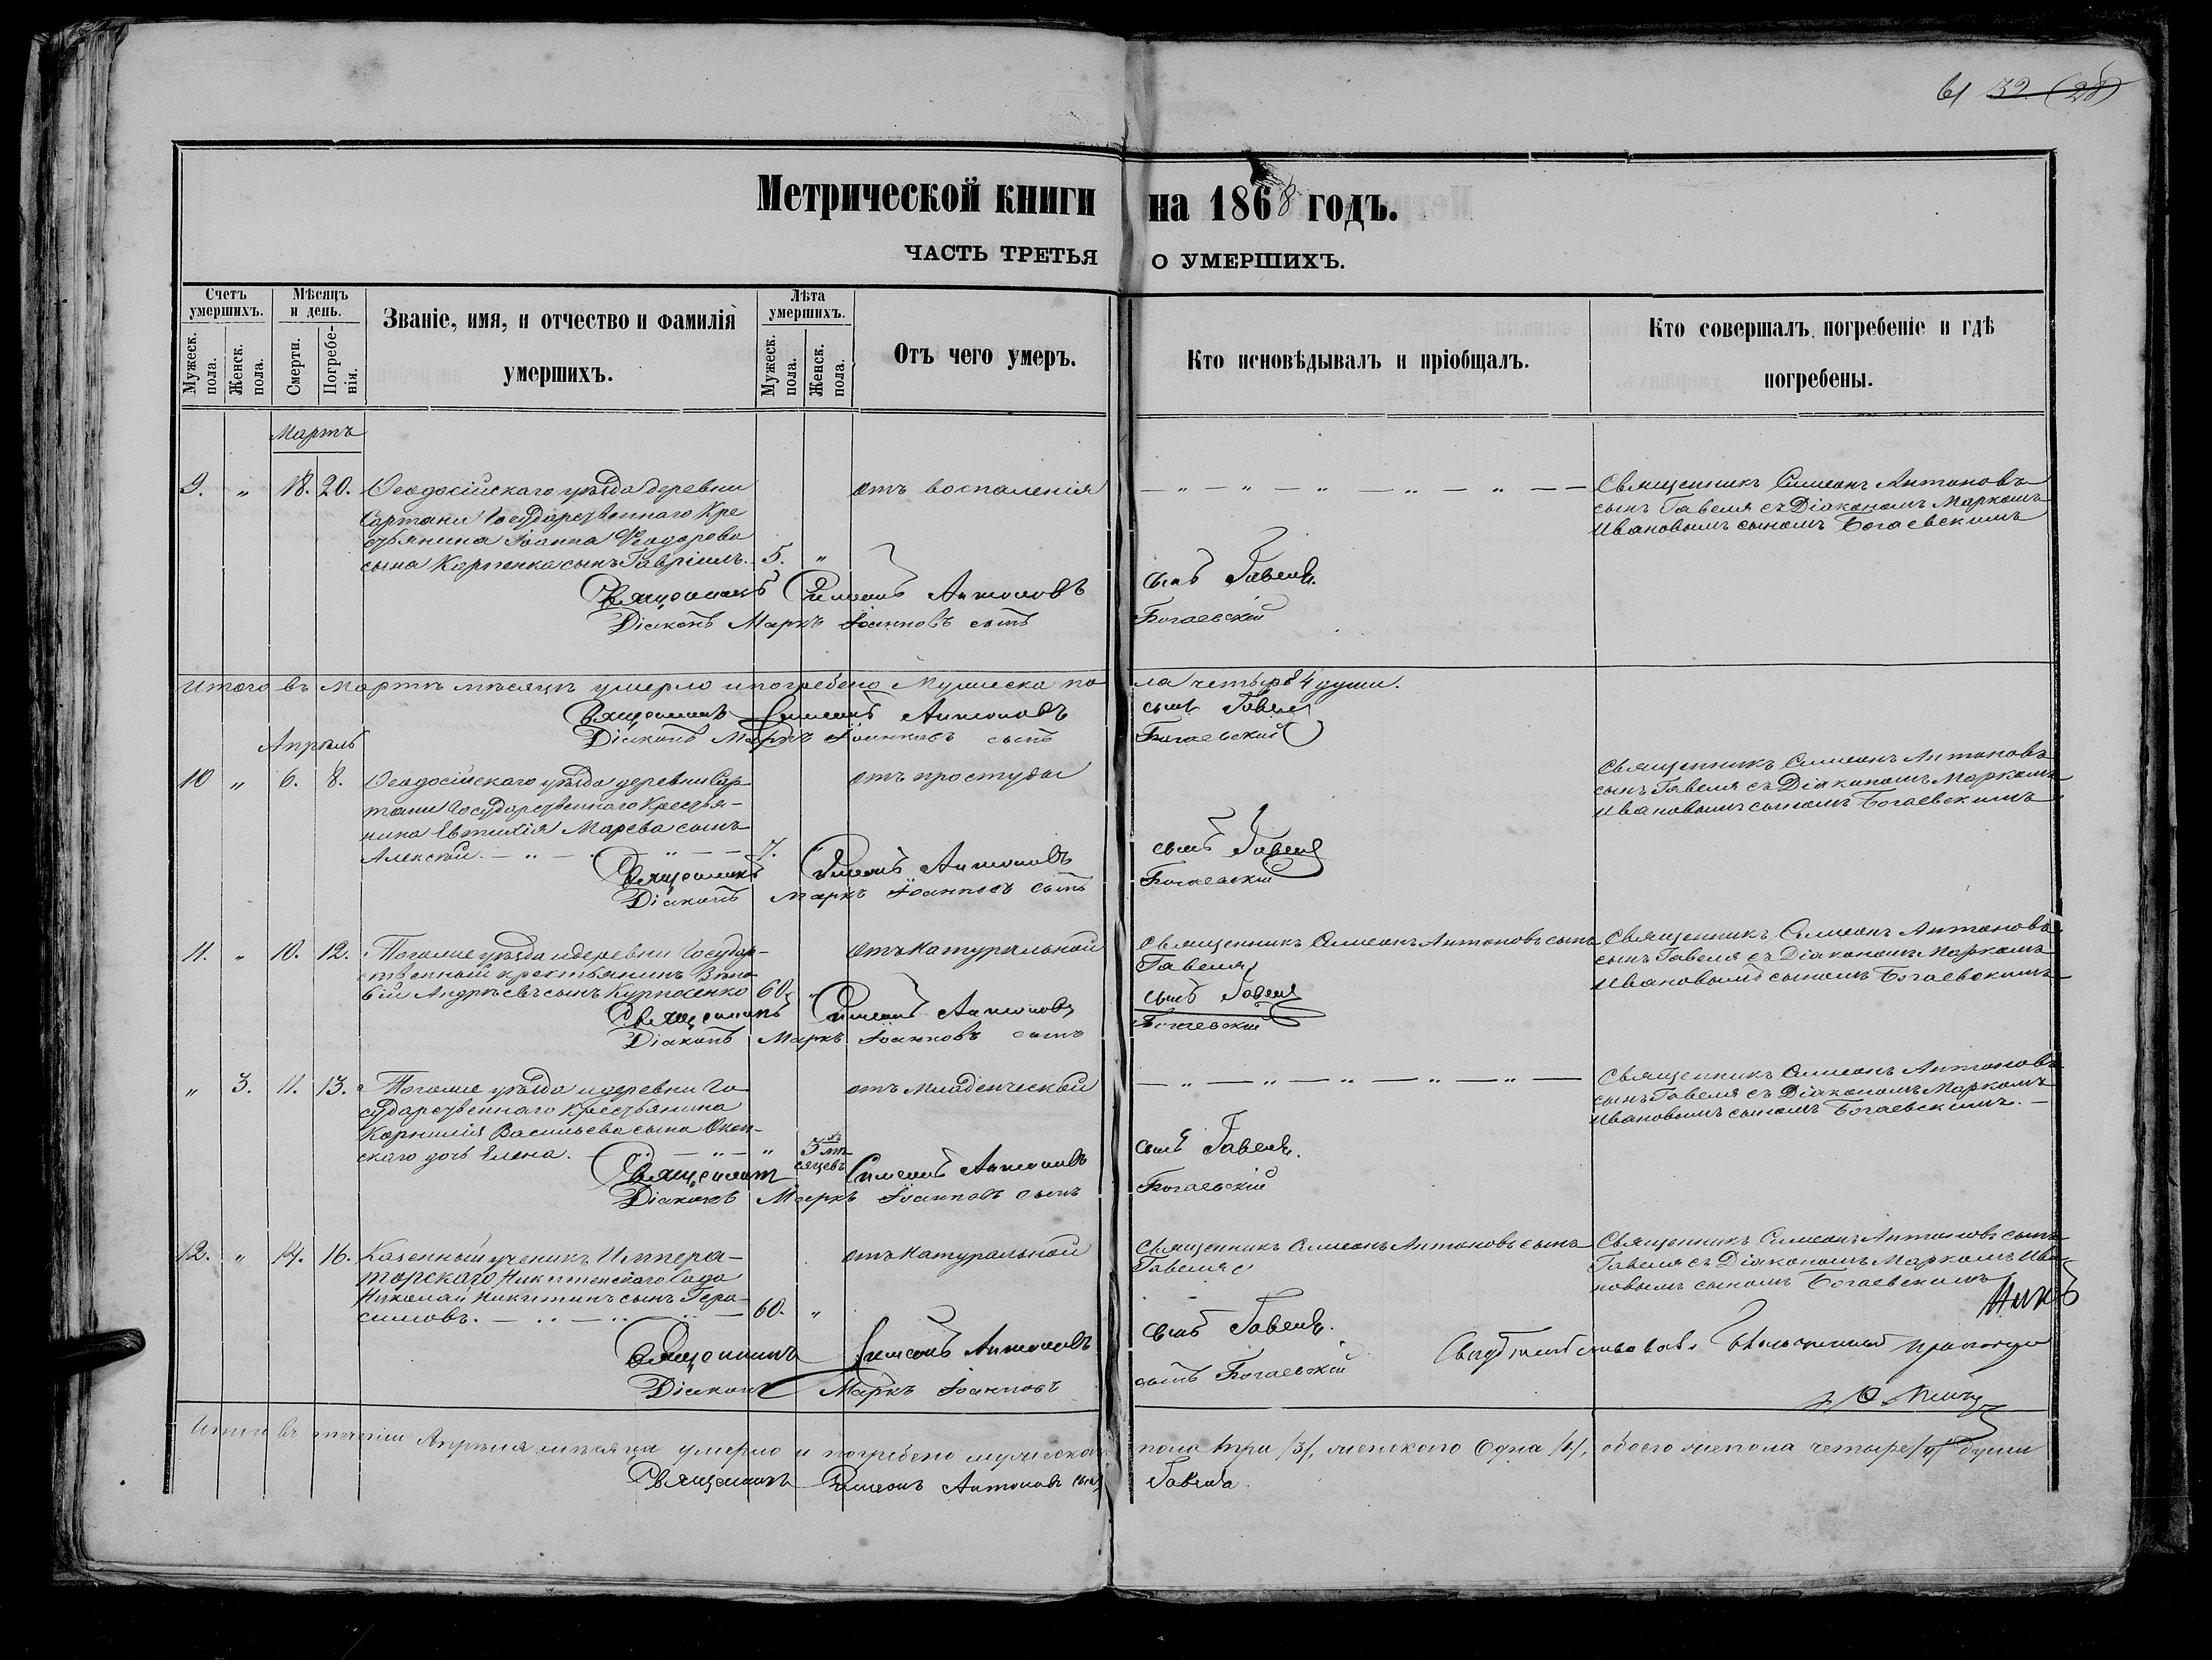 61 32. (28)
Метрической книги на 1868 годъ.
ЧАСТЬ ТРЕТЬЯ О УМЕРШИХЪ.
Счетъ умершихъ.
Мужеск. пола.
Женск. пола.
Мѣсяцъ и день.
Смерти.
Погребе-
нія.
Званіе, имя, и отчество и фамилія
умершихъ.
Лѣта умершихъ.
Мужеск. пола.
Женск. пола.
Отъ чего умеръ.
Кто исповѣдывалъ и пріобщалъ.
Кто совершалъ погребеніе и гдѣ
погребены.
Мартъ
9. „ 18. 20. Ѳеодосійскаго уѣзда деревни отъ воспаленія — „ — „ — „ — „ — „ — — Священникъ Симеонъ Антоновъ
Сартани Государственнаго Кре сынъ Гавеля съ Діакономъ Маркомъ
стьянина Іоанна Ѳеодорова Ивановымъ сыномъ Богаевскимъ
сына Карпенка сынъ Гавріилъ. 5. „
Священникъ Симеонъ Антоновъ сынъ Гавеля.
Діаконъ Маркъ Іоанновъ сынъ Богаевскій
Итого въ Мартѣ мѣсяцѣ умерло и погребено Мужеска по ла четыре 4 души.
Священникъ Симеонъ Антоновъ сынъ Гавеля
Діаконъ Маркъ Іоанновъ сынъ Богаевскій
Апрѣль
10 „ 6. 8. Ѳеодосійскаго уѣзда деревни Сар- отъ простуды Священникъ Симеонъ Антоновъ
тани Государственнаго Крестья- сынъ Гавеля съ Діакономъ Маркомъ
нина Евтихія Марева сынъ Ивановымъ сыномъ Богаевскимъ
Алексѣй. — „ — „ — — 7. „
Священникъ Симеонъ Антоновъ сынъ Гавеля
Діаконъ Маркъ Іоанновъ сынъ Богаевскій
11. „ 10. 12. Тогоже уѣзда и деревни Государ- отъ натуральной Священникъ Симеонъ Антоновъ сынъ Священникъ Симеонъ Антоновъ
ственный крестьянинъ Гавеля сынъ Гавеля съ Діакономъ Маркомъ
Андреевъ сынъ 60. „ Ивановымъ сыномъ Богаевскимъ
Священникъ Симеонъ Антоновъ сынъ Гавеля
Діаконъ Маркъ Іоанновъ сынъ Богаевскій
„ 3. 11. 13. Тогоже уѣзда и деревни Го- отъ младенческой — „ — „ — „ — „ — „ — Священникъ Симеонъ Антоновъ
сударственнаго Крестьянина сынъ Гавеля съ Діакономъ Маркомъ
Корнилія Васильева сына Ивановымъ сыномъ Богаевскимъ. —
скаго дочь Елена. — „ — „ 3 мѣ-
сяцевъ
Священникъ Симеонъ Антоновъ сынъ Гавеля.
Діаконъ Маркъ Іоанновъ сынъ Богаевскій
12. „ 14. 16. Казенный ученикъ Импера- отъ натуральной Священникъ Симеонъ Антоновъ сынъ Священникъ Симеонъ Антоновъ сынъ
торскаго Никитскаго Сада Гавеля Гавеля съ Діакономъ Маркомъ Ива-
Николай Никитинъ сынъ Гера- новымъ сыномъ Богаевскимъ
симовъ. — „ — „ — „ — 60. „
Священникъ Симеонъ Антоновъ сынъ Гавеля.
Діаконъ Маркъ Іоанновъ сынъ Богаевскій
Свидѣтельствовалъ
Итого въ теченіи Апрѣля мѣсяца умерло и погребено мужеска пола три /3/, женскаго Одна /1/, обоего же пола четыре /4/ души
Священникъ Симеонъ Антоновъ сынъ Гавеля.